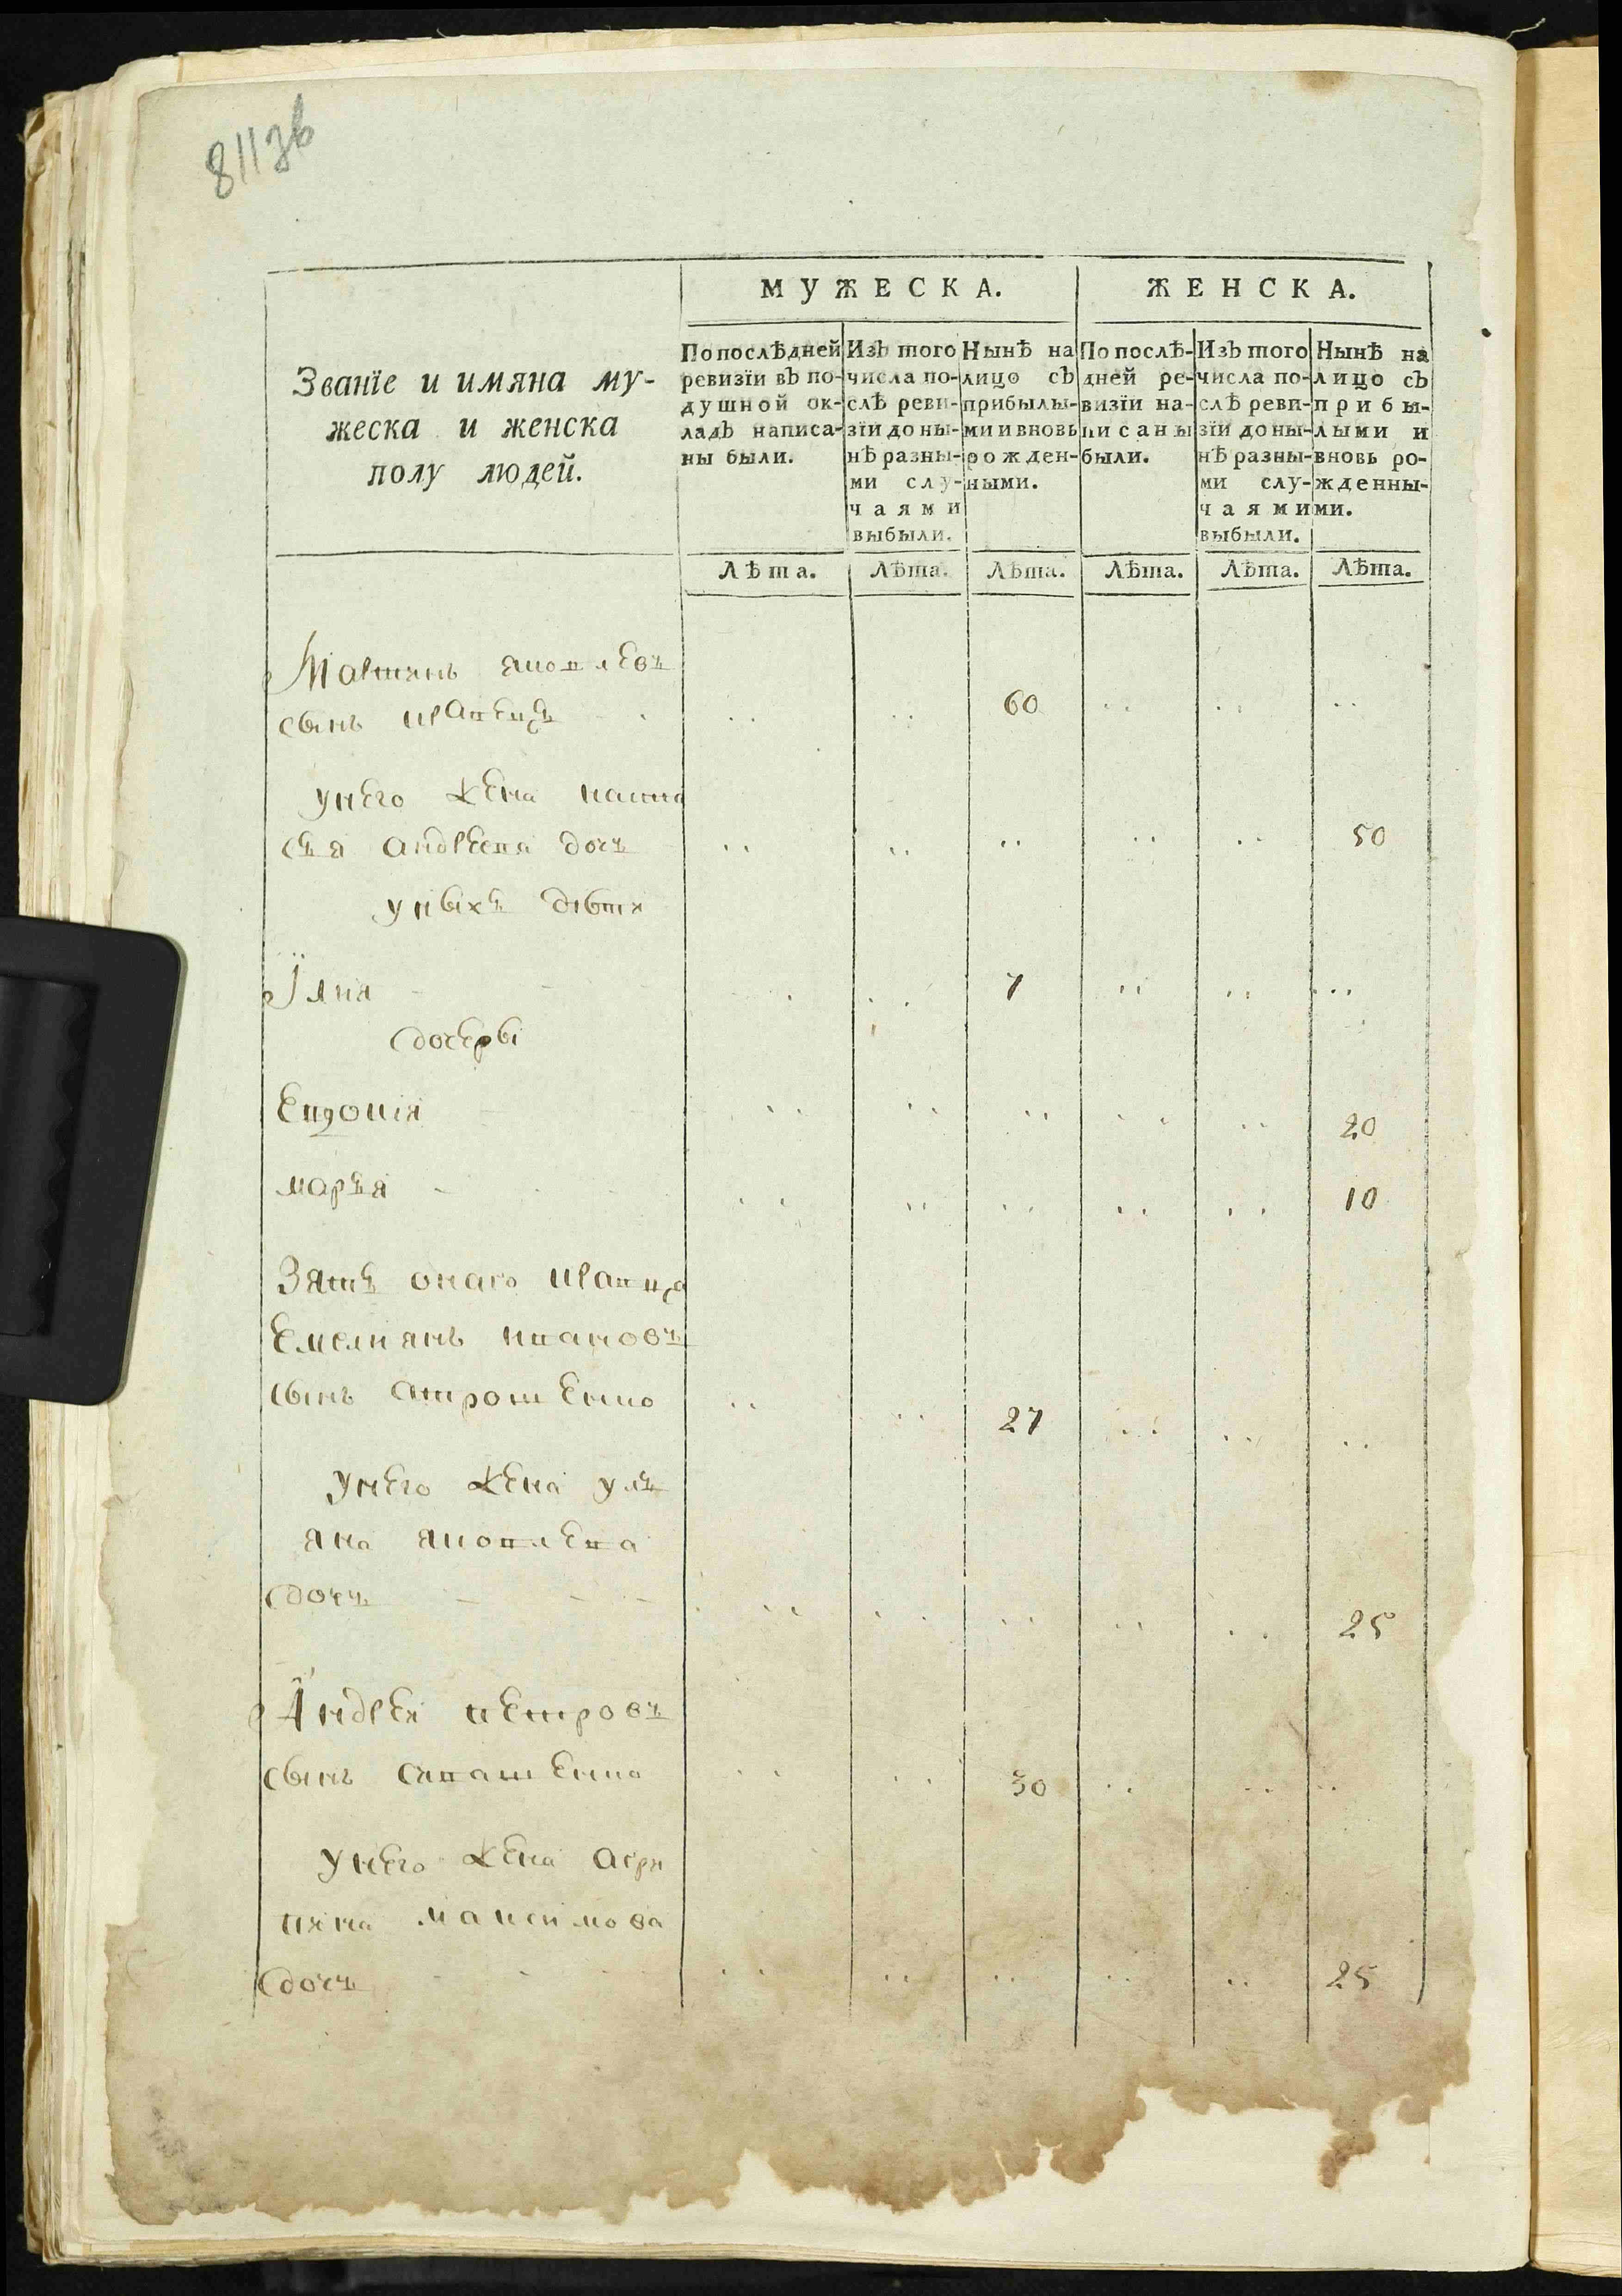 811зв
МУЖЕСКА. ЖЕНСКА.
Званїе и имяна му-
жеска и женска
полу людей.
По послѣдней
ревизїи въ по-
душной ок-
ладъ написа-
ны были.
Изъ того
числа по-
слѣ реви-
зїи до ны-
нѣ разны-
ми слу-
чаями
выбыли.
Нынѣ на
лицо съ
прибылы-
ми и вновь
рожден-
ными.
По послѣ-
дней ре-
визїи на-
писаны
были.
Изъ того
числа по-
слѣ реви-
зїи до ны-
нѣ разны-
ми слу-
чаями
выбыли.
Нынѣ на
лицо съ
прибы-
лыми и
вновь ро-
жденны-
ми.
Лѣта. Лѣта. Лѣта. Лѣта. Лѣта. Лѣта.
яковлевъ
сынъ 60
унего жена наста
сья андреева дочь 50
унихъ дѣти
Їлия 7
дочери
Евдокия 20
марья 10
Зять онаго
Емелиянъ ивановъ
сынъ атрошенко 27
унего жена уль
яна яковлева
дочь 25
Андреи петровъ
сынъ савашенко 30
унего жена агри
пина максимова
дочь 25